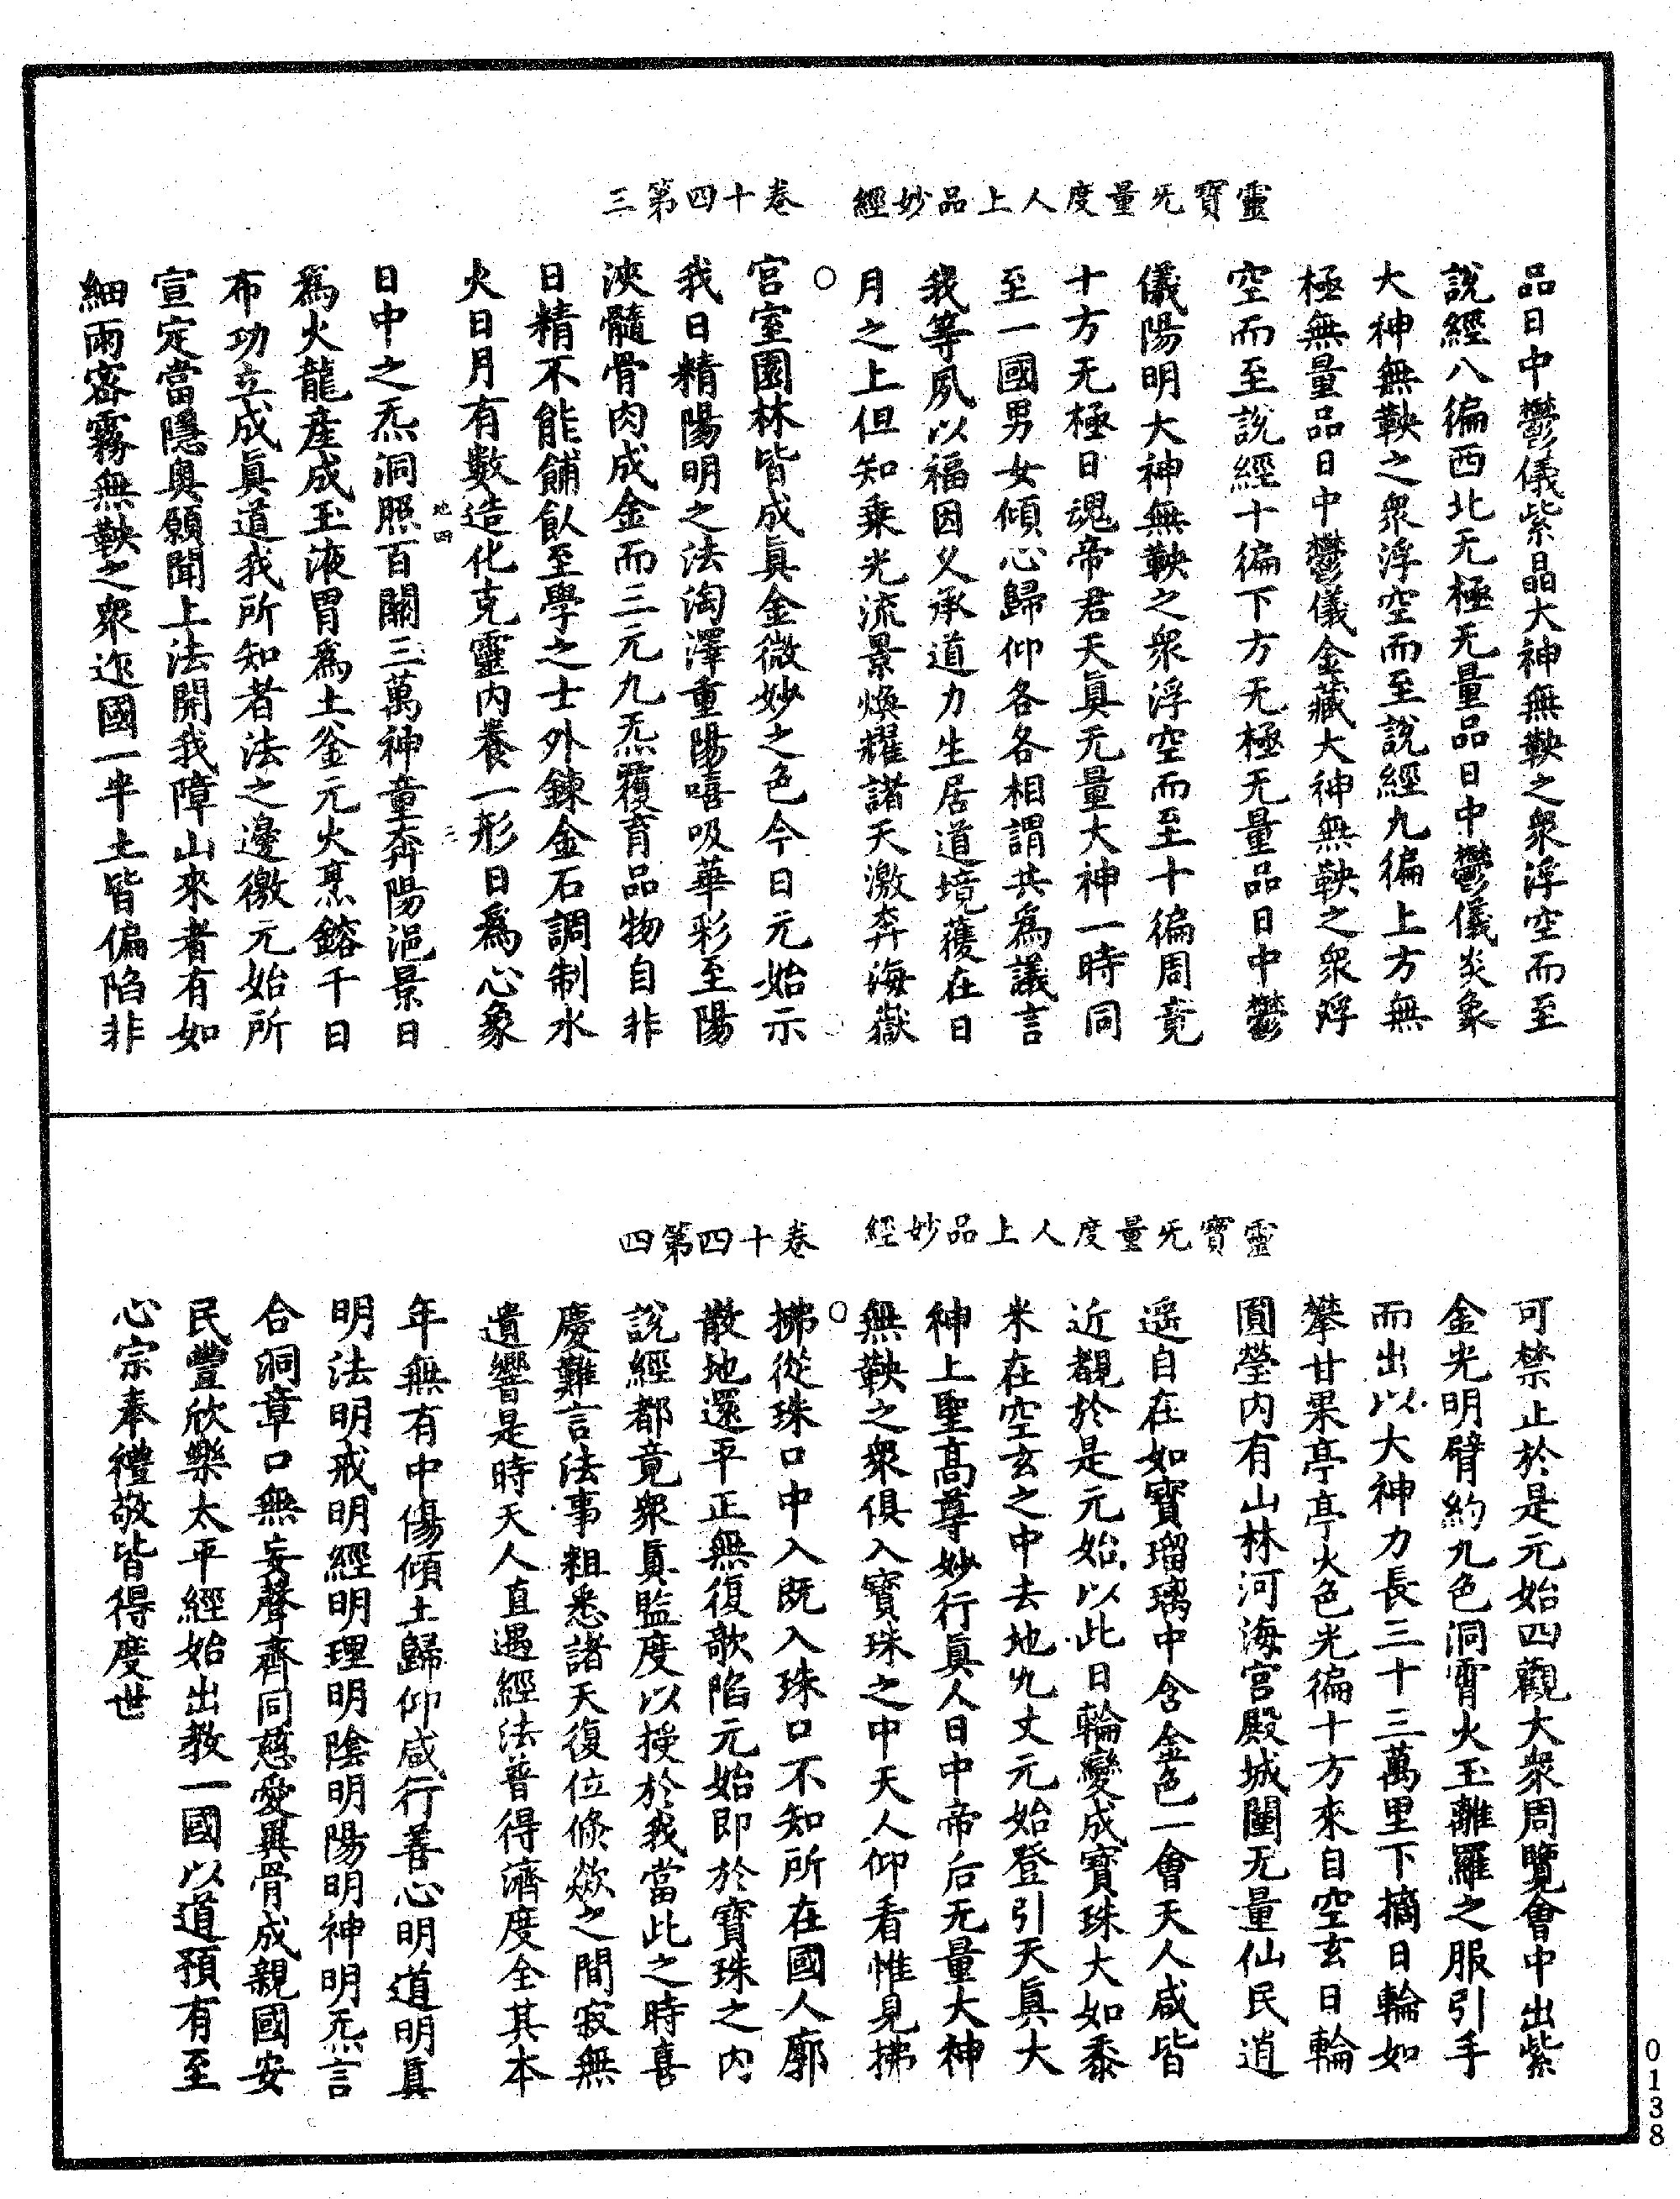 靈寶旡量度人上品妙經　卷十四第三
品日中鬱儀紫晶大神無鞅之衆浮空而至
說經八徧西北无極无量品日中鬱儀炎象
大神無鞅之衆浮空而至說經九徧上方無
極無量品日中鬱儀金藏大神無鞅之衆浮
空而至說經十徧下方无極无量品日中鬱
儀陽明大神無鞅之衆浮空而至十徧周竟
十方无極日魂帝君天眞无量大神一時同
至一國男女傾心歸仰各各相謂共爲議言
我等夙以福因乂承道力生居道境獲在日
月之上但知乗光流景煥耀諸天激奔海嶽
宫室園林皆成眞金微妙之色今日元始示
我日精陽明之法淘澤重陽嘻吸華彩至陽
浹髓骨肉成金而三元九炁覆育品物自非
日精不能餔飲至學之士外鍊金石調制水
火日月有數造化克靈内養一形日爲心象
地四　三
日中之炁洞照百關三萬神童奔陽浥景日
爲火龍產成玉液胃爲土釡元火烹鎔千日
布功立成眞道我所知者法之邊徼元始所
宣定當隱奥願聞上法開我障山來者有如
細雨宻霧無鞅之衆迮國一半土皆偏陷非
靈寶旡量度人上品妙經　卷十四第四
可禁止於是元始四觀大衆周覽會中出紫
金光明臂約九色洞霄火玉離羅之服引手
而出以大神力長三十三萬里下摘日輪如
攀甘果亭亭火色光徧十方來自空玄日輪
圓瑩内有山林河海宫殿城闉无量仙民逍
遥自在如寶瑠璃中含金色一會天人咸皆
近覩於是元始以此日輪變成寶珠大如黍
米在空玄之中去地九丈元始登引天眞大
神上聖髙尊妙行眞人日中帝后无量大神
無鞅之衆俱入寶珠之中天人仰看惟見拂
拂從珠口中入既入珠口不知所在國人廓
散地還平正無復欹陷元始即於寶珠之内
說經都竟衆眞監度以授於我當此之時喜
慶難言法事粗悉諸天復位倐歘之間寂無
遺響是時天人直遇經法普得濟度全其本
年無有中傷傾土歸仰咸行善心明道明眞
明法明戒明經明理明陰明陽明神明炁言
合洞章口無妄聲齊同慈愛異骨成親國安
民豐欣樂太平經始出教一國以道預有至
心宗奉禮敬皆得度世
0138